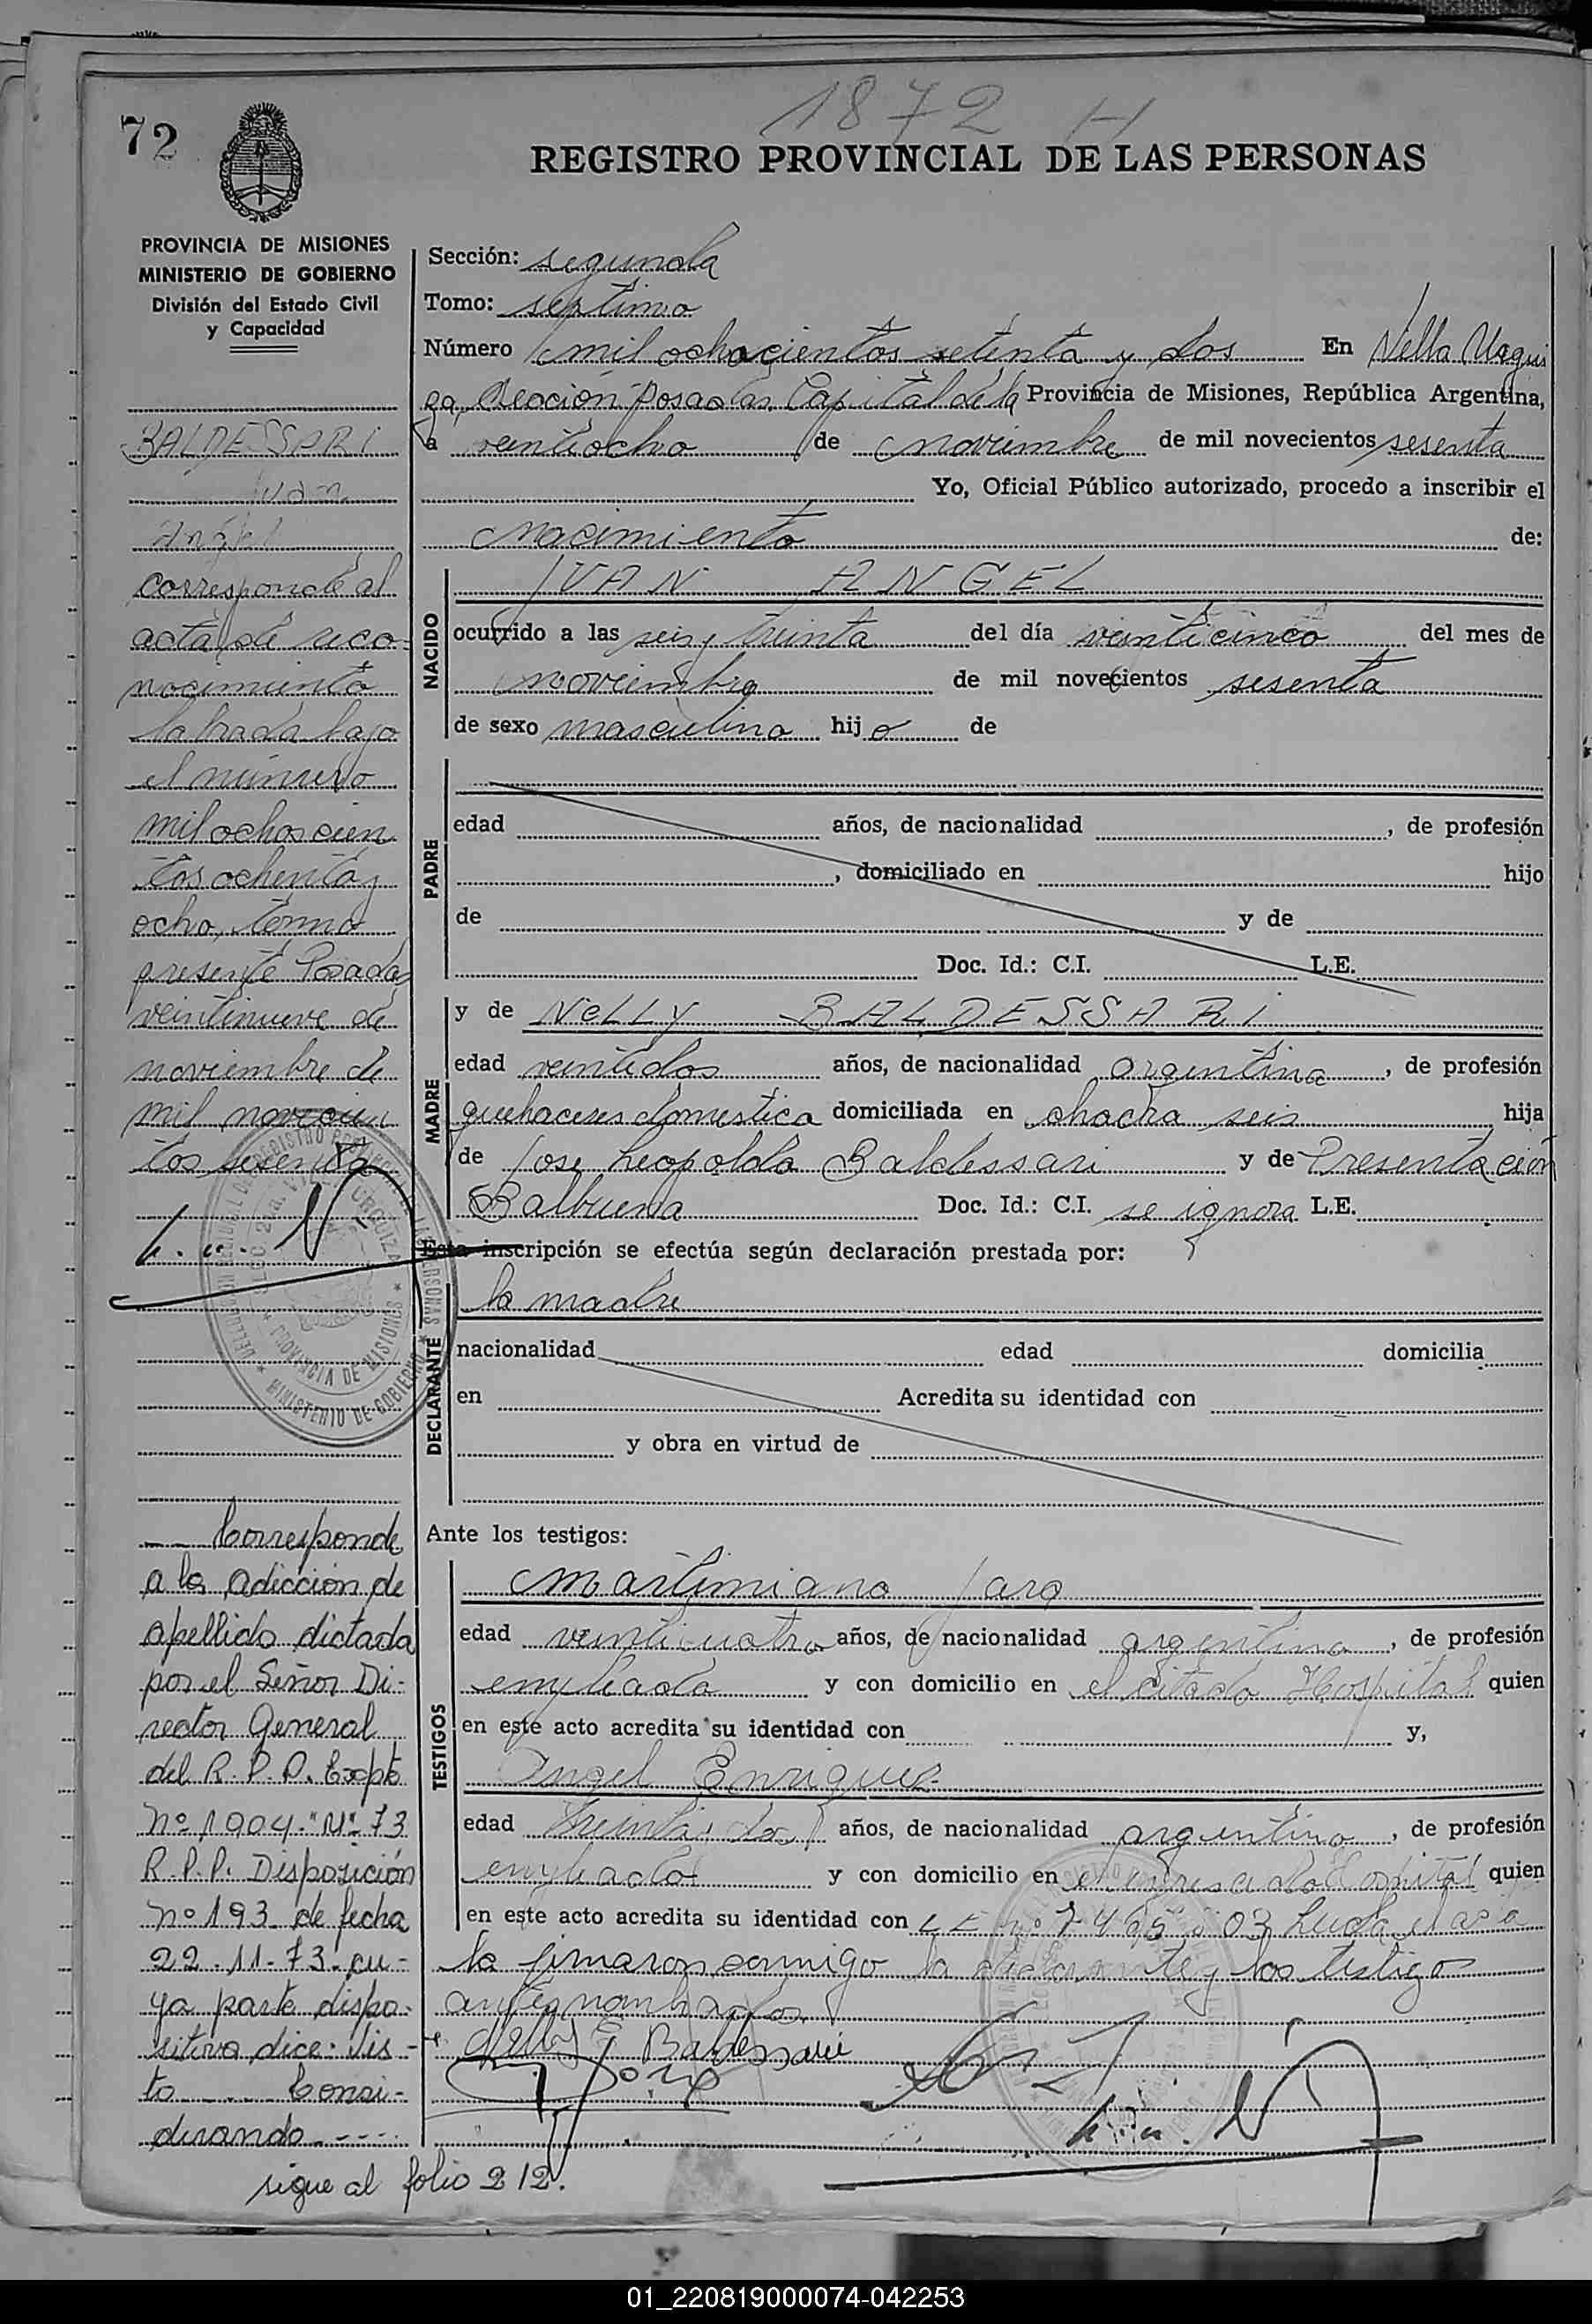 1872 H
72
REGISTRO PROVINCIAL DE LAS PERSONAS
PROVINCIA DE MISIONES
MINISTERIO DE GOBIERNO
División del Estado Civil
y Capacidad
BALDESSARI
Juan
Angel
corresponde al
acta de reco-
nocimiento
labrada bajo
el número
mil ochocien
tos ochenta y
ocho, tomo
presente Posadas
veintinueve de
noviembre de
mil novecien
tos sesenta
Corresponde
a la adicción de
apellido dictada
por el Señor Di-
rector General
del R. P. P. Expte
Nº 1904-"M"-73
R.P.P. Disposición
Nº 193 de fecha
22-11-73-cu-
ya parte dispo-
sitiva dice: Vis-
to .... Consi-
derando ----
sigue al folio 212.
Sección: segunda
Tomo: septimo
Número mil ochocientos setenta y dos En Villa Urqui
za, Sección Posadas Capital de la Provincia de Misiones, República Argentina,
a veintiocho de noviembre de mil novecientos sesenta
Yo, Oficial Público autorizado, procedo a inscribir el
nacimiento de:
NACIDO
JUAN ANGEL
ocurrido a las seis y treinta del día veinticinco del mes de
noviembre de mil novecientos sesenta
de sexo masculino hijo de
PADRE
edad años, de nacionalidad , de profesión
, domiciliado en hijo
de y de
Doc. Id.: C.I. L.E.
MADRE
y de NELLY BALDESSARI
edad veintidos años, de nacionalidad argentina, de profesión
quehaceres domestica domiciliada en chacra seis hija
de Jose Leopoldo Baldessari y de Presentación
Balbuena Doc. Id.: C.I. se ignora L.E.
Esta inscripción se efectúa según declaración prestada por:
DECLARANTE
la madre
nacionalidad edad domicilia
en Acredita su identidad con
y obra en virtud de
Ante los testigos:
TESTIGOS
Martimiano Jara
edad veinticuatro años, de nacionalidad argentino, de profesión
empleado y con domicilio en el citado Hospital quien
en este acto acredita su identidad con y,
Angel Enriquez
edad treinta y dos años, de nacionalidad argentino, de profesión
empleado y con domicilio en el Hospital quien
en este acto acredita su identidad con L E nº Leida el ac a
la firmaron conmigo la declarante y los testigos
antes nombrados
Nelly Baldessari
01_220819000074-042253